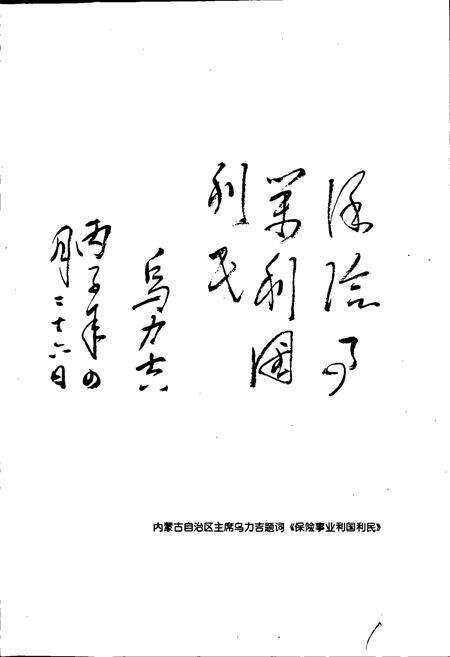 保险事
業利国
利民
乌力吉
丙子年四
月二十六日
内蒙古自治区主席乌力吉题词《保险事业利国利民》